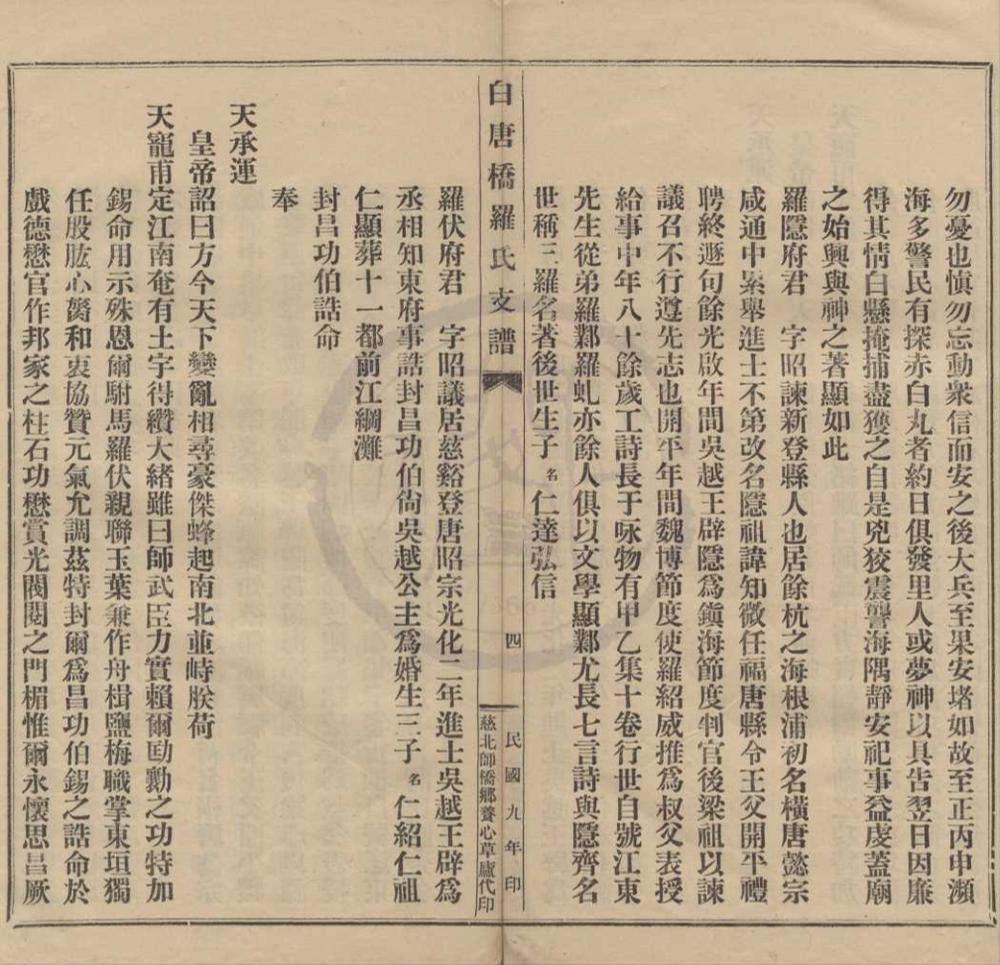 勿憂也愼勿忘動衆信而安之後大兵至果安堵如故至正丙申瀕
海多警民有探赤白丸者約日俱發里人或夢神以具告翌日因廉
得其情白縣掩捕盡獲之自是兇狡震讋海隅靜安祀事益虔蓋廟
之始興與神之著顯如此
羅隱府君　字昭諫新登縣人也居餘杭之海根浦初名橫唐懿宗
咸通中累舉進士不第改名隱祖諱知微任福唐縣令王父開平禮
聘終遯句餘光啟年間吳越王辟隱爲鎭海節度判官後梁祖以諫
議召不行遵先志也開平年間魏博節度使羅紹威推爲叔父表授
給事中年八十餘歲工詩長于咏物有甲乙集十卷行世自號江東
先生從弟羅鄴羅虬亦餘人俱以文學顯鄴尤長七言詩與隱齊名
世稱三羅名著後世生子名仁達弘信
白唐橋羅氏支譜
四
民國九年印
慈北師橋鄉養心草廬代印
羅伏府君　字昭議居慈谿登唐昭宗光化二年進士吳越王辟爲
丞相知東府事誥封昌功伯尙吳越公主爲婚生三子名仁紹仁祖
仁顯葬十一都前江綱灘
封昌功伯誥命
奉
天承運
皇帝詔曰方今天下變亂相尋豪傑蜂起南北並峙朕荷
天寵甫定江南奄有土宇得纘大緒雖曰師武臣力實賴爾勖勷之功特加
錫命用示殊恩爾駙馬羅伏親聯玉葉兼作舟楫鹽梅職掌東垣獨
任股肱心膂和衷協贊元氣允調茲特封爾爲昌功伯錫之誥命於
戲德懋官作邦家之柱石功懋賞光閥閱之門楣惟爾永懷思昌厥